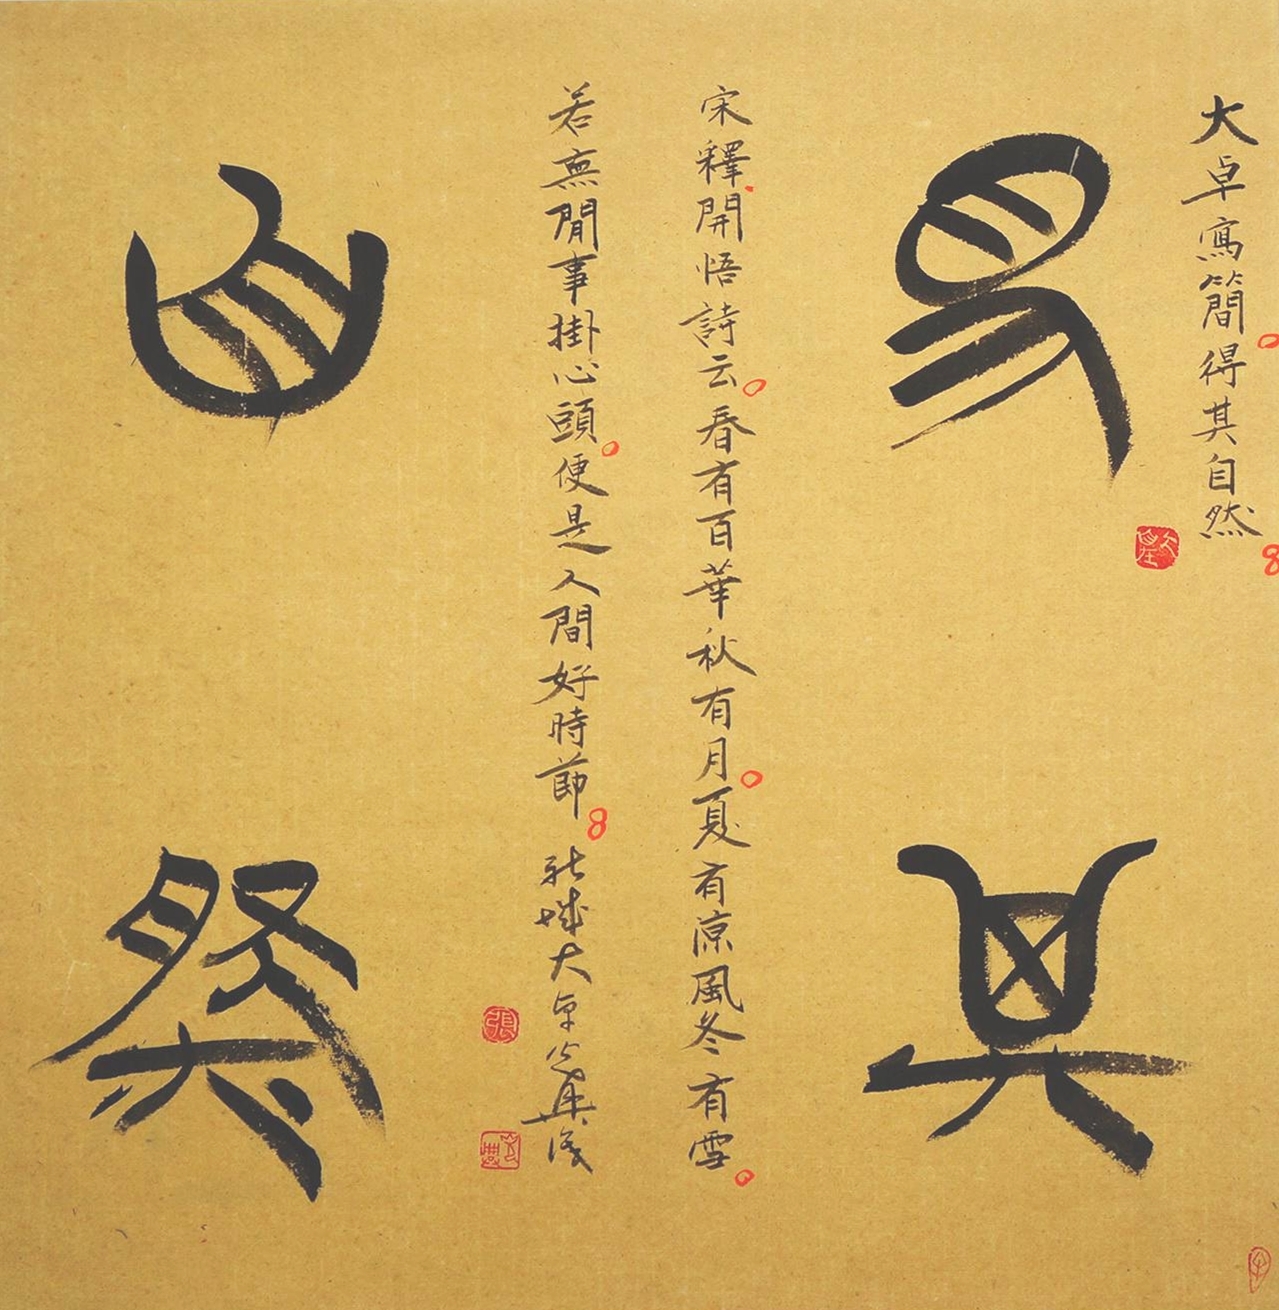 大卓寫簡得其自然
得其
宋釋開悟詩云春有百華秋有月夏有涼風冬有雪
若無閒事掛心頭便是人間好時節
自然